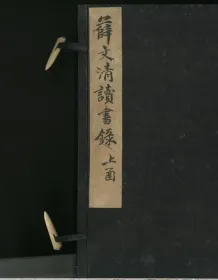 薛文清讀書錄上函